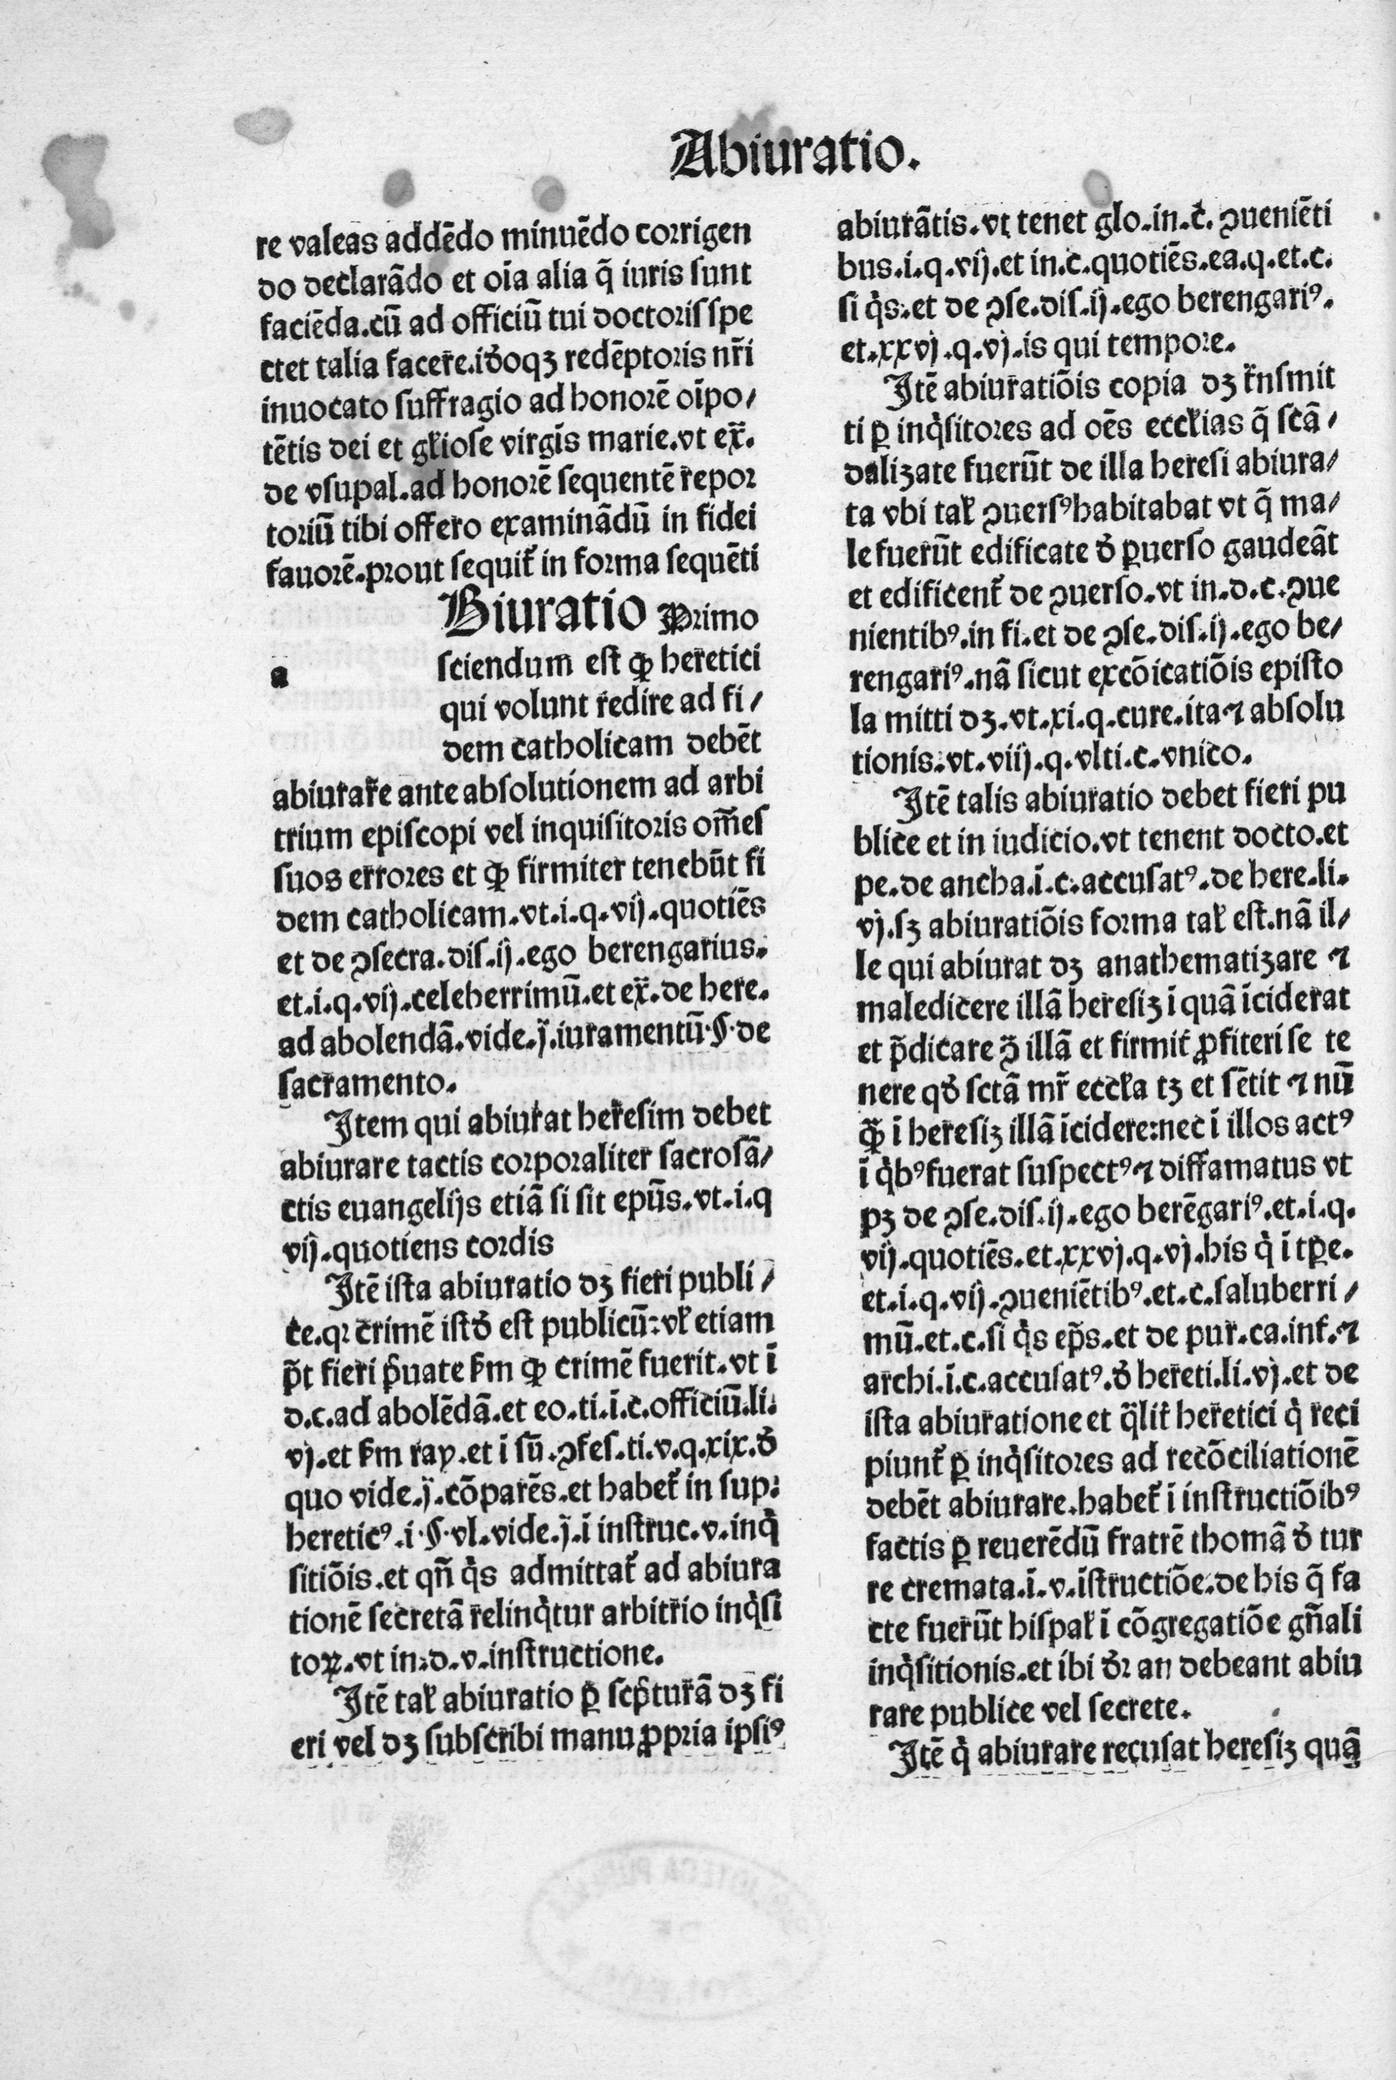 Abiuratio.
re valeas addēdo minuēdo corrigen
do declarādo et oīa alia q̄ iuris sunt
faciēda.cū ad officiū tui doctoris spe
ctet talia facere.iđoqꝫ redēptoris nr̄i
inuocato suffragio ad honorē oīpo/
tētis dei et gl'iose virgīs marie.vt ex̄.
de vsupal.ad honorē sequentē repor
toriū tibi offero examinādū in fidei
fauorē.prout sequit̄ in forma sequēti
Biuratio Primo
a sciendum est ꝙ heretici
qui volunt redire ad fi/
dem catholicam debēt
abiurare ante absolutionem ad arbi
trium episcopi vel inquisitoris om̄es
suos errores et ꝙ firmiter tenebūt fi
dem catholicam.vt.i.q.vij.quotiēs
et de ꝯsecra.dis.ij.ego berengarius.
et.i.q.vij.celeberrimū.et ex̄.de here.
ad abolendā.vide.j̄.iuramentū.§.de
sacramento.
Jtem qui abiurat heresim debet
abiurare tactis corporaliter sacrosā/
ctis euangelijs etiā si sit epūs.vt.i.q
vij.quotiens cordis
Jtē ista abiuratio dꝫ fieri publi/
ce.qꝛ crimē istđ est publicū:vl' etiam
p̄t fieri p̄uate km̄ ꝙ crimē fuerit.vt ī
d.c.ad abolēdā.et eo.ti.ī.c.officiū.li.
vj.et km̄ ray.et ī sū.ꝯfes.ti.v.q.xix.đ
quo vide.j̄.cōparēs.et habet̄ in sup:
heretic⁹.i.§.vl.vide.j̄.ī instruc.v.inq̇
sitiōis.et qn̄ q̇s admittat̄ ad abiura
tionē secretā relinq̇tur arbitrio inq̇si
toꝝ.vt in.d.v.instructione.
Jtē tal' abiuratio ꝑ scp̄turā dꝫ fi
eri vel dꝫ subscribi manu ꝓpria ipsi⁹
abiurātis.vt tenet glo.in.c̄.ꝯueniēti
bus.i.q.vij.et in.c.quotiēs.ea.q.et.c.
si q̇s.et de ꝯse.dis.ij.ego berengari⁹.
et.xxvj.q.vj.is qui tempore.
Jtē abiuratiōis copia dꝫ trn̄smit
ti ꝑ inq̇sitores ad oēs eccl'ias q̄ scā/
dalizate fuerūt de illa heresi abiura/
ta vbi tal' ꝯuers⁹ habitabat vt q̄ ma/
le fuerūt edificate đ ꝑuerso gaudeāt
et edificent̄ de ꝯuerso.vt in.d.c.ꝯue
nientib⁹.in fi.et de ꝯse.dis.ij.ego be/
rengari⁹.nā sicut excōicatiōis episto
la mitti dꝫ.vt.xi.q.cure.ita ⁊ absolu
tionis.vt.viij.q.vlti.c.vnico.
Jtē talis abiuratio debet fieri pu
blice et in iudicio.vt tenent docto.et
pe.de ancha.ī.c.accusat⁹.de here.li.
vj.sꝫ abiuratiōis forma tal' est.nā il/
le qui abiurat dꝫ anathematizare ⁊
maledicere illā heresiꝫ ī quā īciderat
et p̄dicare ꝯ illā et firmit̄ ꝓfiteri se te
nere qđ sctā mr̄ eccl'a tꝫ et sētit ⁊ nū
ꝙ̄ ī heresiꝫ illā īcidere:nec ī illos act⁹
ī q̇b⁹ fuerat suspect⁹ ⁊ diffamatus vt
pꝫ de ꝯse.dis.ij.ego berēgari⁹.et.i.q.
vij.quotiēs.et.xxvj.q.vj.his q̇ ī tꝑe.
et.i.q.vij.ꝯueniētib⁹.et.c.saluberri/
mū.et.c.si q̇s ep̄s.et de pur.ca.inf.⁊
archi.ī.c.accusat⁹.đ hereti.li.vj.et de
ista abiuratione et q̄lit̄ heretici q̇ reci
piunt̄ ꝑ inq̇sitores ad recōciliationē
debēt abiurare.habet̄ ī instructiōib⁹
factis ꝑ reuerēdū fratrē thomā đ tur
re cremata.ī.v.īstructiōe.de his q̄ fa
cte fuerūt hispal' ī cōgregatiōe gn̄ali
inq̇sitionis.et ibi đꝛ an debeant abiu
rare publice vel secrete.
Jtē q̇ abiurare recusat heresiꝫ quā